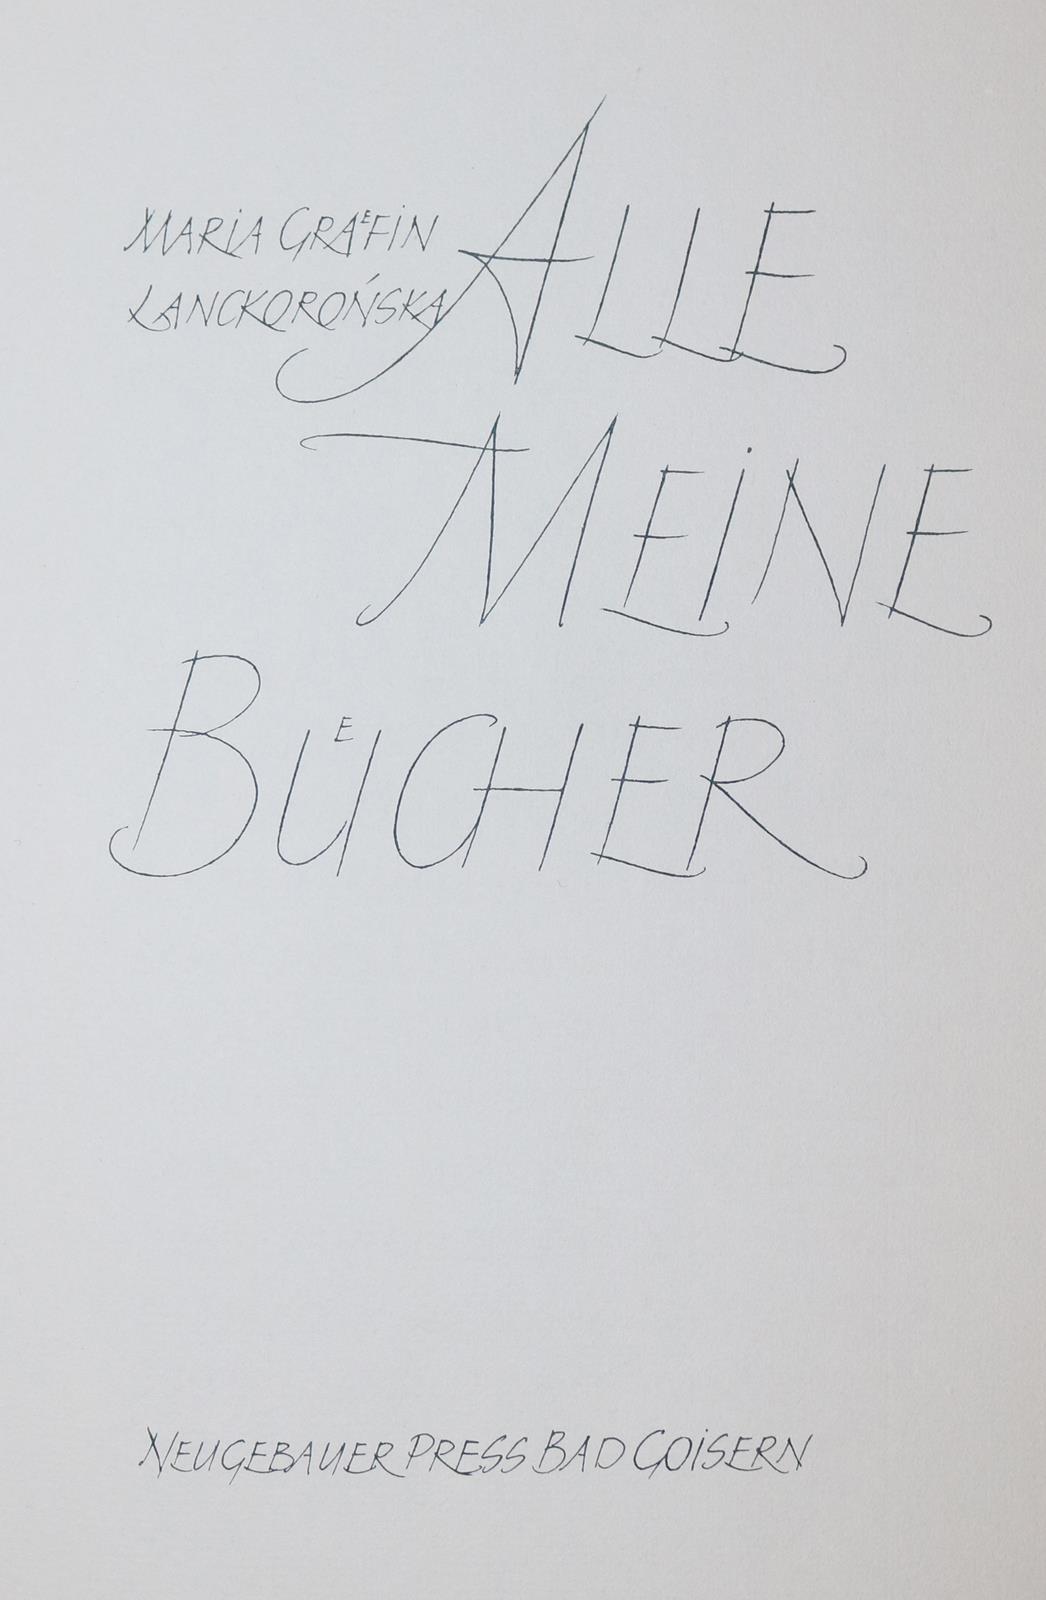 MARIA GRAͤFIN
LANCKOROŃSKA
ALLE
MEINE
BUͤCHER
NEUGEBAUER PRESS BAD GOISERN